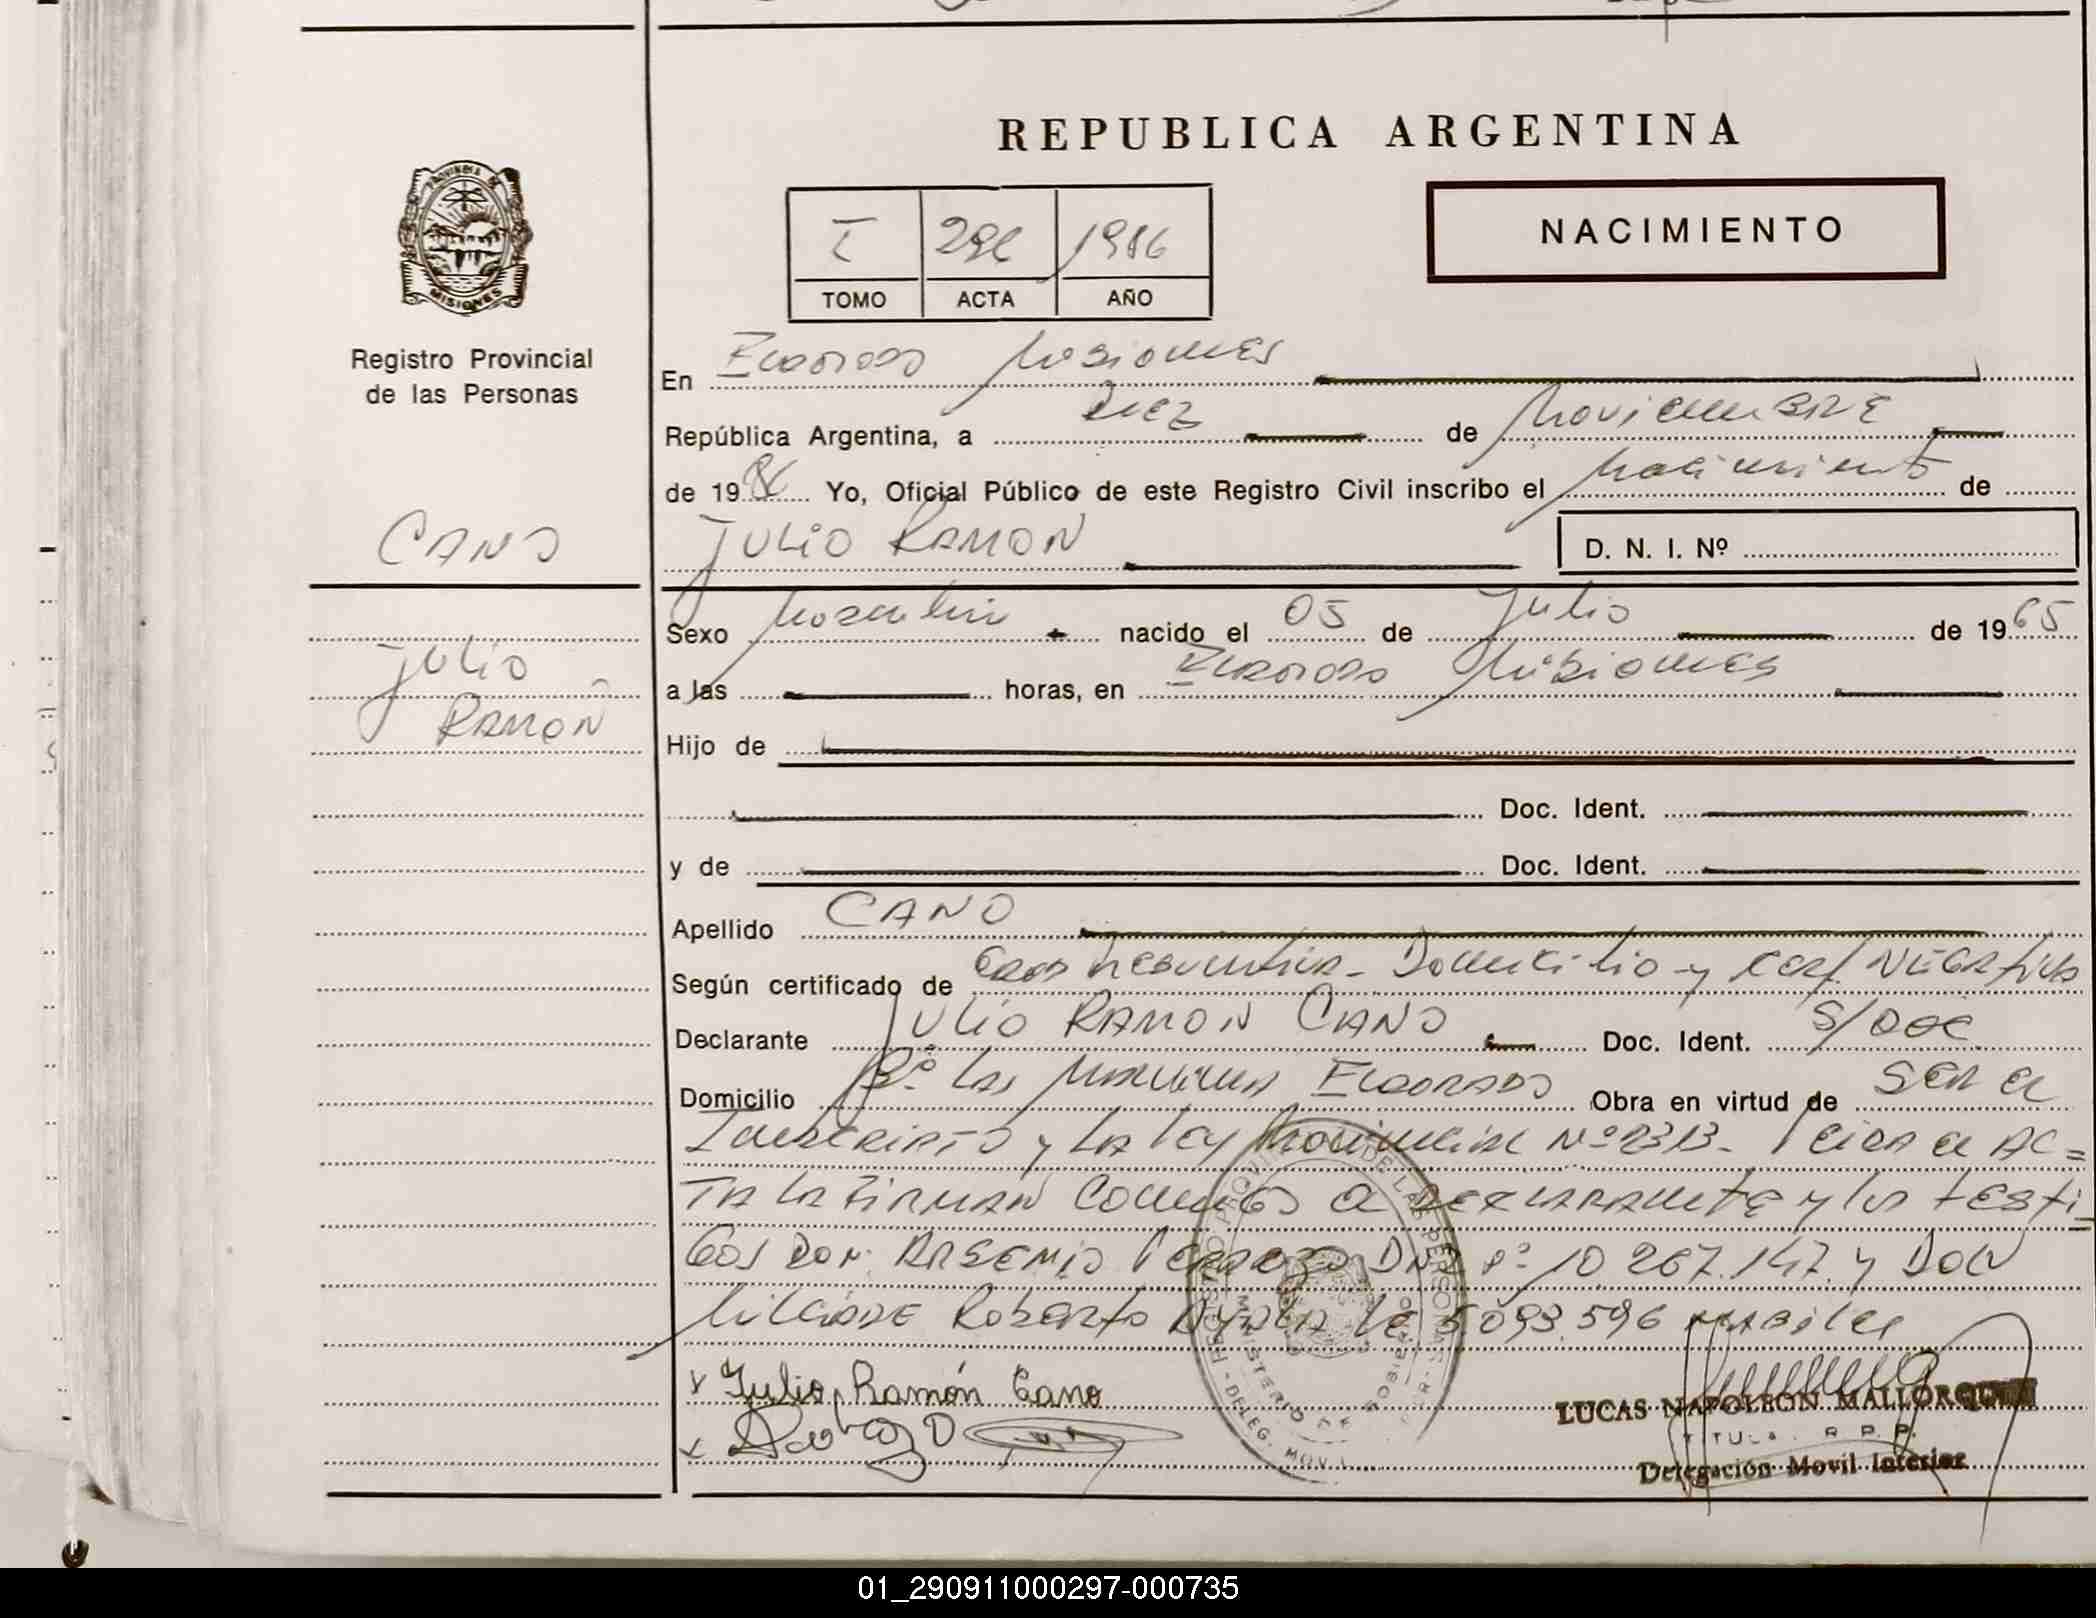 REPUBLICA ARGENTINA
NACIMIENTO
PROVINCIA DE
MISIONES
Registro Provincial
de las Personas
I 1986
TOMO ACTA AÑO
En Eldorado Misiones
República Argentina, a Diez de Noviembre
de 1986 Yo, Oficial Público de este Registro Civil inscribo el Nacimiento de
JULIO RAMON D. N. I. Nº
CANO
JULIO
RAMON
Sexo Masculin nacido el 05 de Julio de 1965
a las horas, en Eldorado Misiones
Hijo de
Doc. Ident.
y de Doc. Ident.
Apellido CANO
Según certificado de Edad Presuntiva - Domicilio y Cert NEGATIVO
Declarante JULIO RAMON CANO Doc. Ident. S/DOC
Domicilio Bº Las ELDORADO Obra en virtud de SER EL
INSCRIPTO y LA LEY Provincial Nº 2313. Leida el AC=
TA LA FIRMAN CONMIGO el DECLARANTE y los TESTI
GOS DON ARSENIO DNI Nº 10.267.147 y DON
Roberto AYALA LE 5.093.596 HABILES
x Julio, Ramón Cano
x
LUCAS NAPOLEON MALLORQUIN
TITULAR R. P. P.
Delegación Movil Interior
REGISTRO PROVINCIAL DE LAS PERSONAS
MINISTERIO DE GOBIERNO
DELEG. MOVIL
01_290911000297-000735